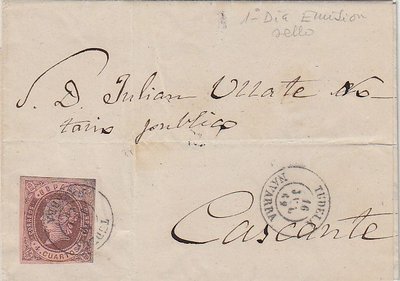 1º Dia Emision
sello
S. D. Julian Ullate No-
tario publico
TUDELA
16
JUL
62
NAVARRA
4 CUARTOS
Cascante